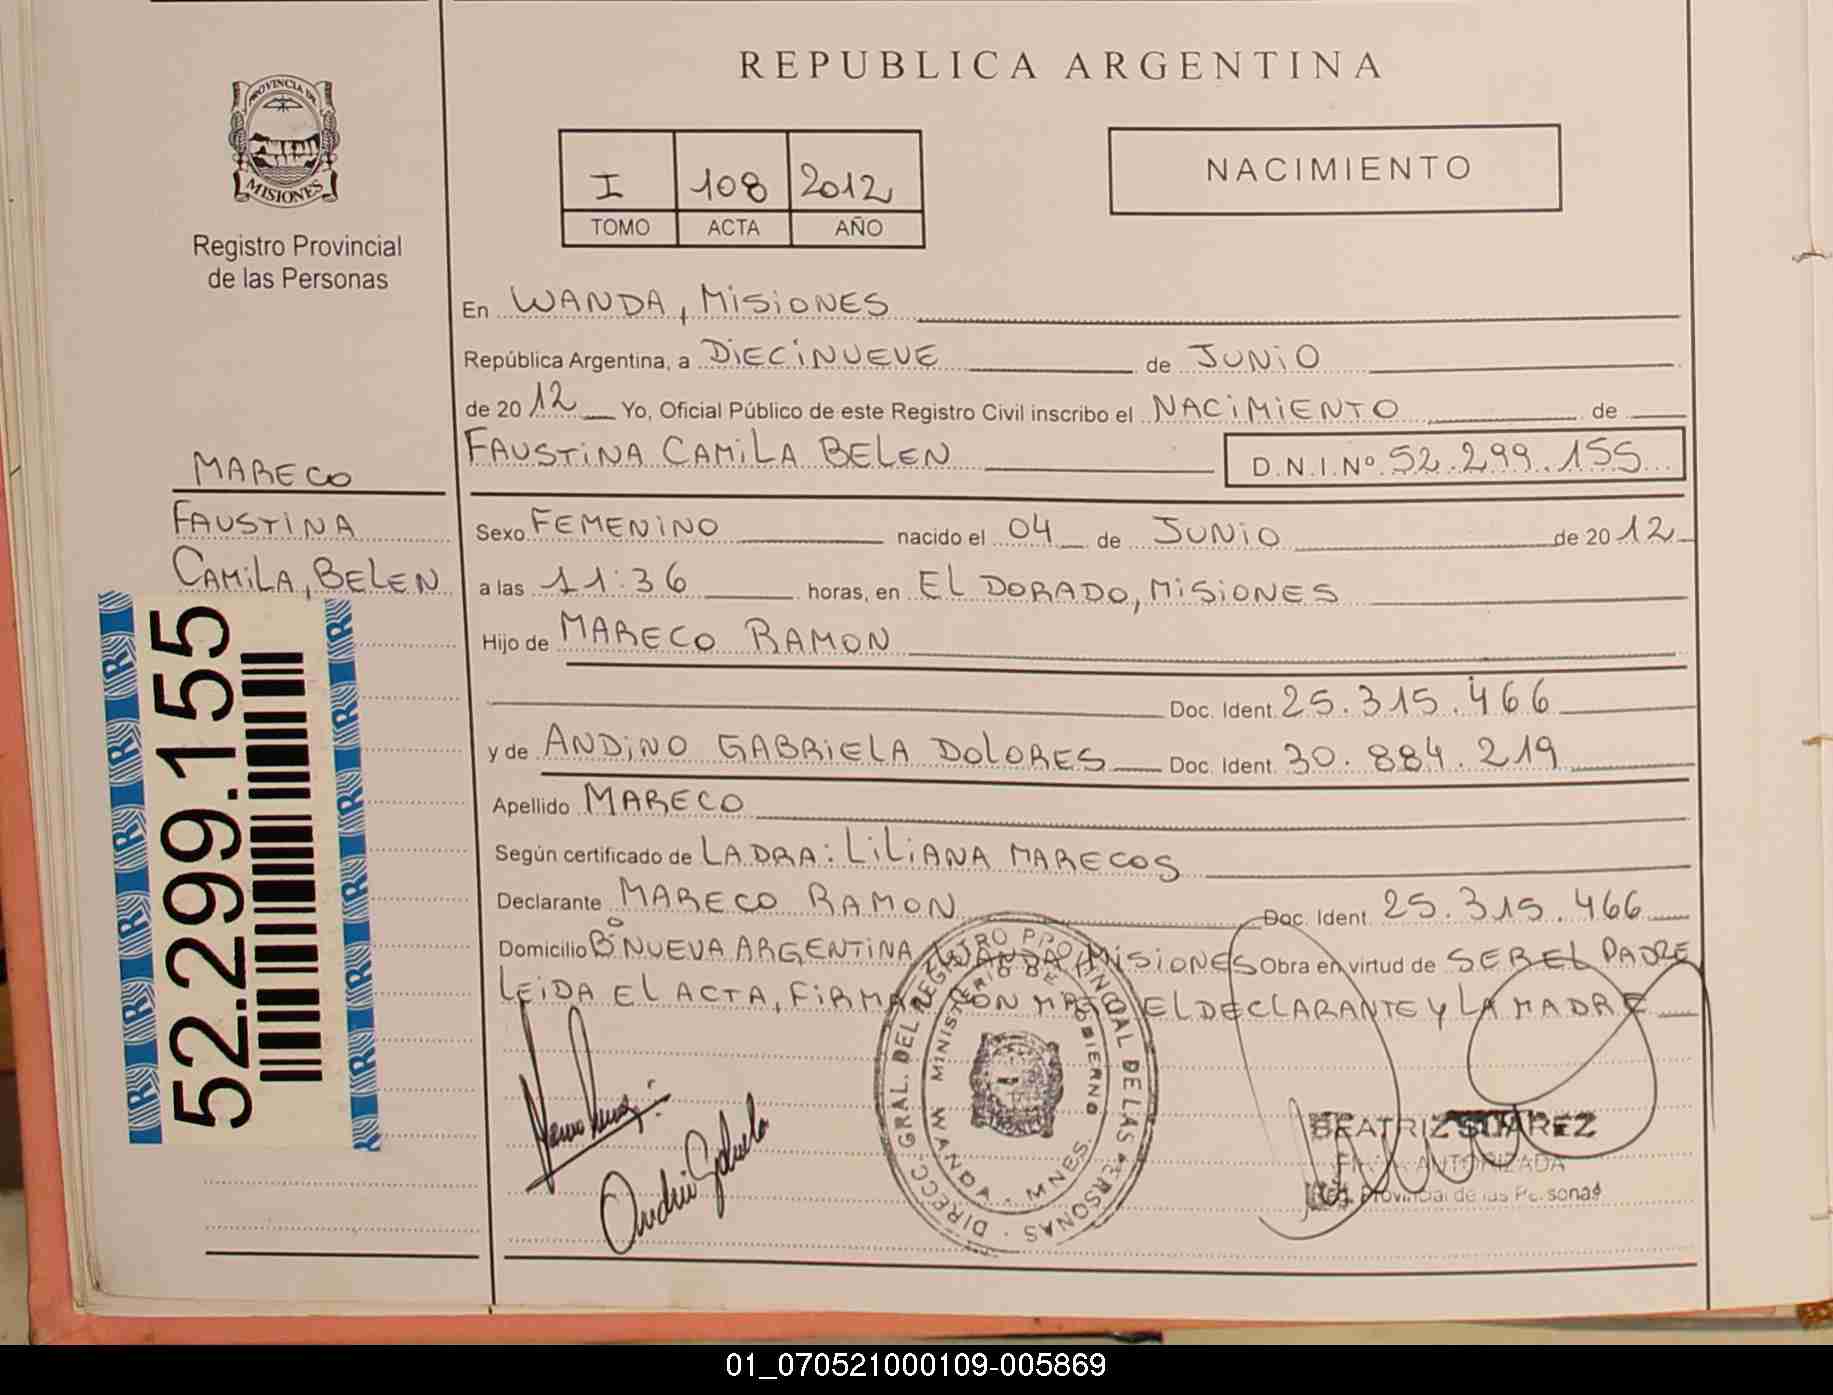 REPUBLICA ARGENTINA
PROVINCIA DE
MISIONES
Registro Provincial
de las Personas
I 108 2012
TOMO ACTA AÑO
NACIMIENTO
En WANDA, MISIONES
República Argentina, a DIECINUEVE de JUNIO
de 2012 Yo, Oficial Público de este Registro Civil inscribo el NACIMIENTO de
FAUSTINA CAMILA BELEN D.N.I.Nº 52.299.155
MARECO
FAUSTINA
CAMILA, BELEN
52.299.155
Sexo FEMENINO nacido el 04 de JUNIO de 2012
a las 11:36 horas, en EL DORADO, MISIONES
Hijo de MARECO RAMON
Doc. Ident. 25.315.466
y de ANDINO GABRIELA DOLORES Doc. Ident. 30.884.219
Apellido MARECO
Según certificado de LA DRA: LILIANA MARECOS
Declarante MARECO RAMON Doc. Ident. 25.315.466
Domicilio Bº NUEVA ARGENTINA, WANDA, MISIONES Obra en virtud de SER EL PADRE
LEIDA EL ACTA, FIRMAN CON MIGO EL DECLARANTE Y LA MADRE
DIRECC. GRAL. DEL REGISTRO PROVINCIAL DE LAS PERSONAS
MINISTERIO DE GOBIERNO
WANDA - MNES.
Andino Gabriela
BEATRIZ SUAREZ
FIRMA AUTORIZADA
Reg. Provincial de las Personas
01_070521000109-005869